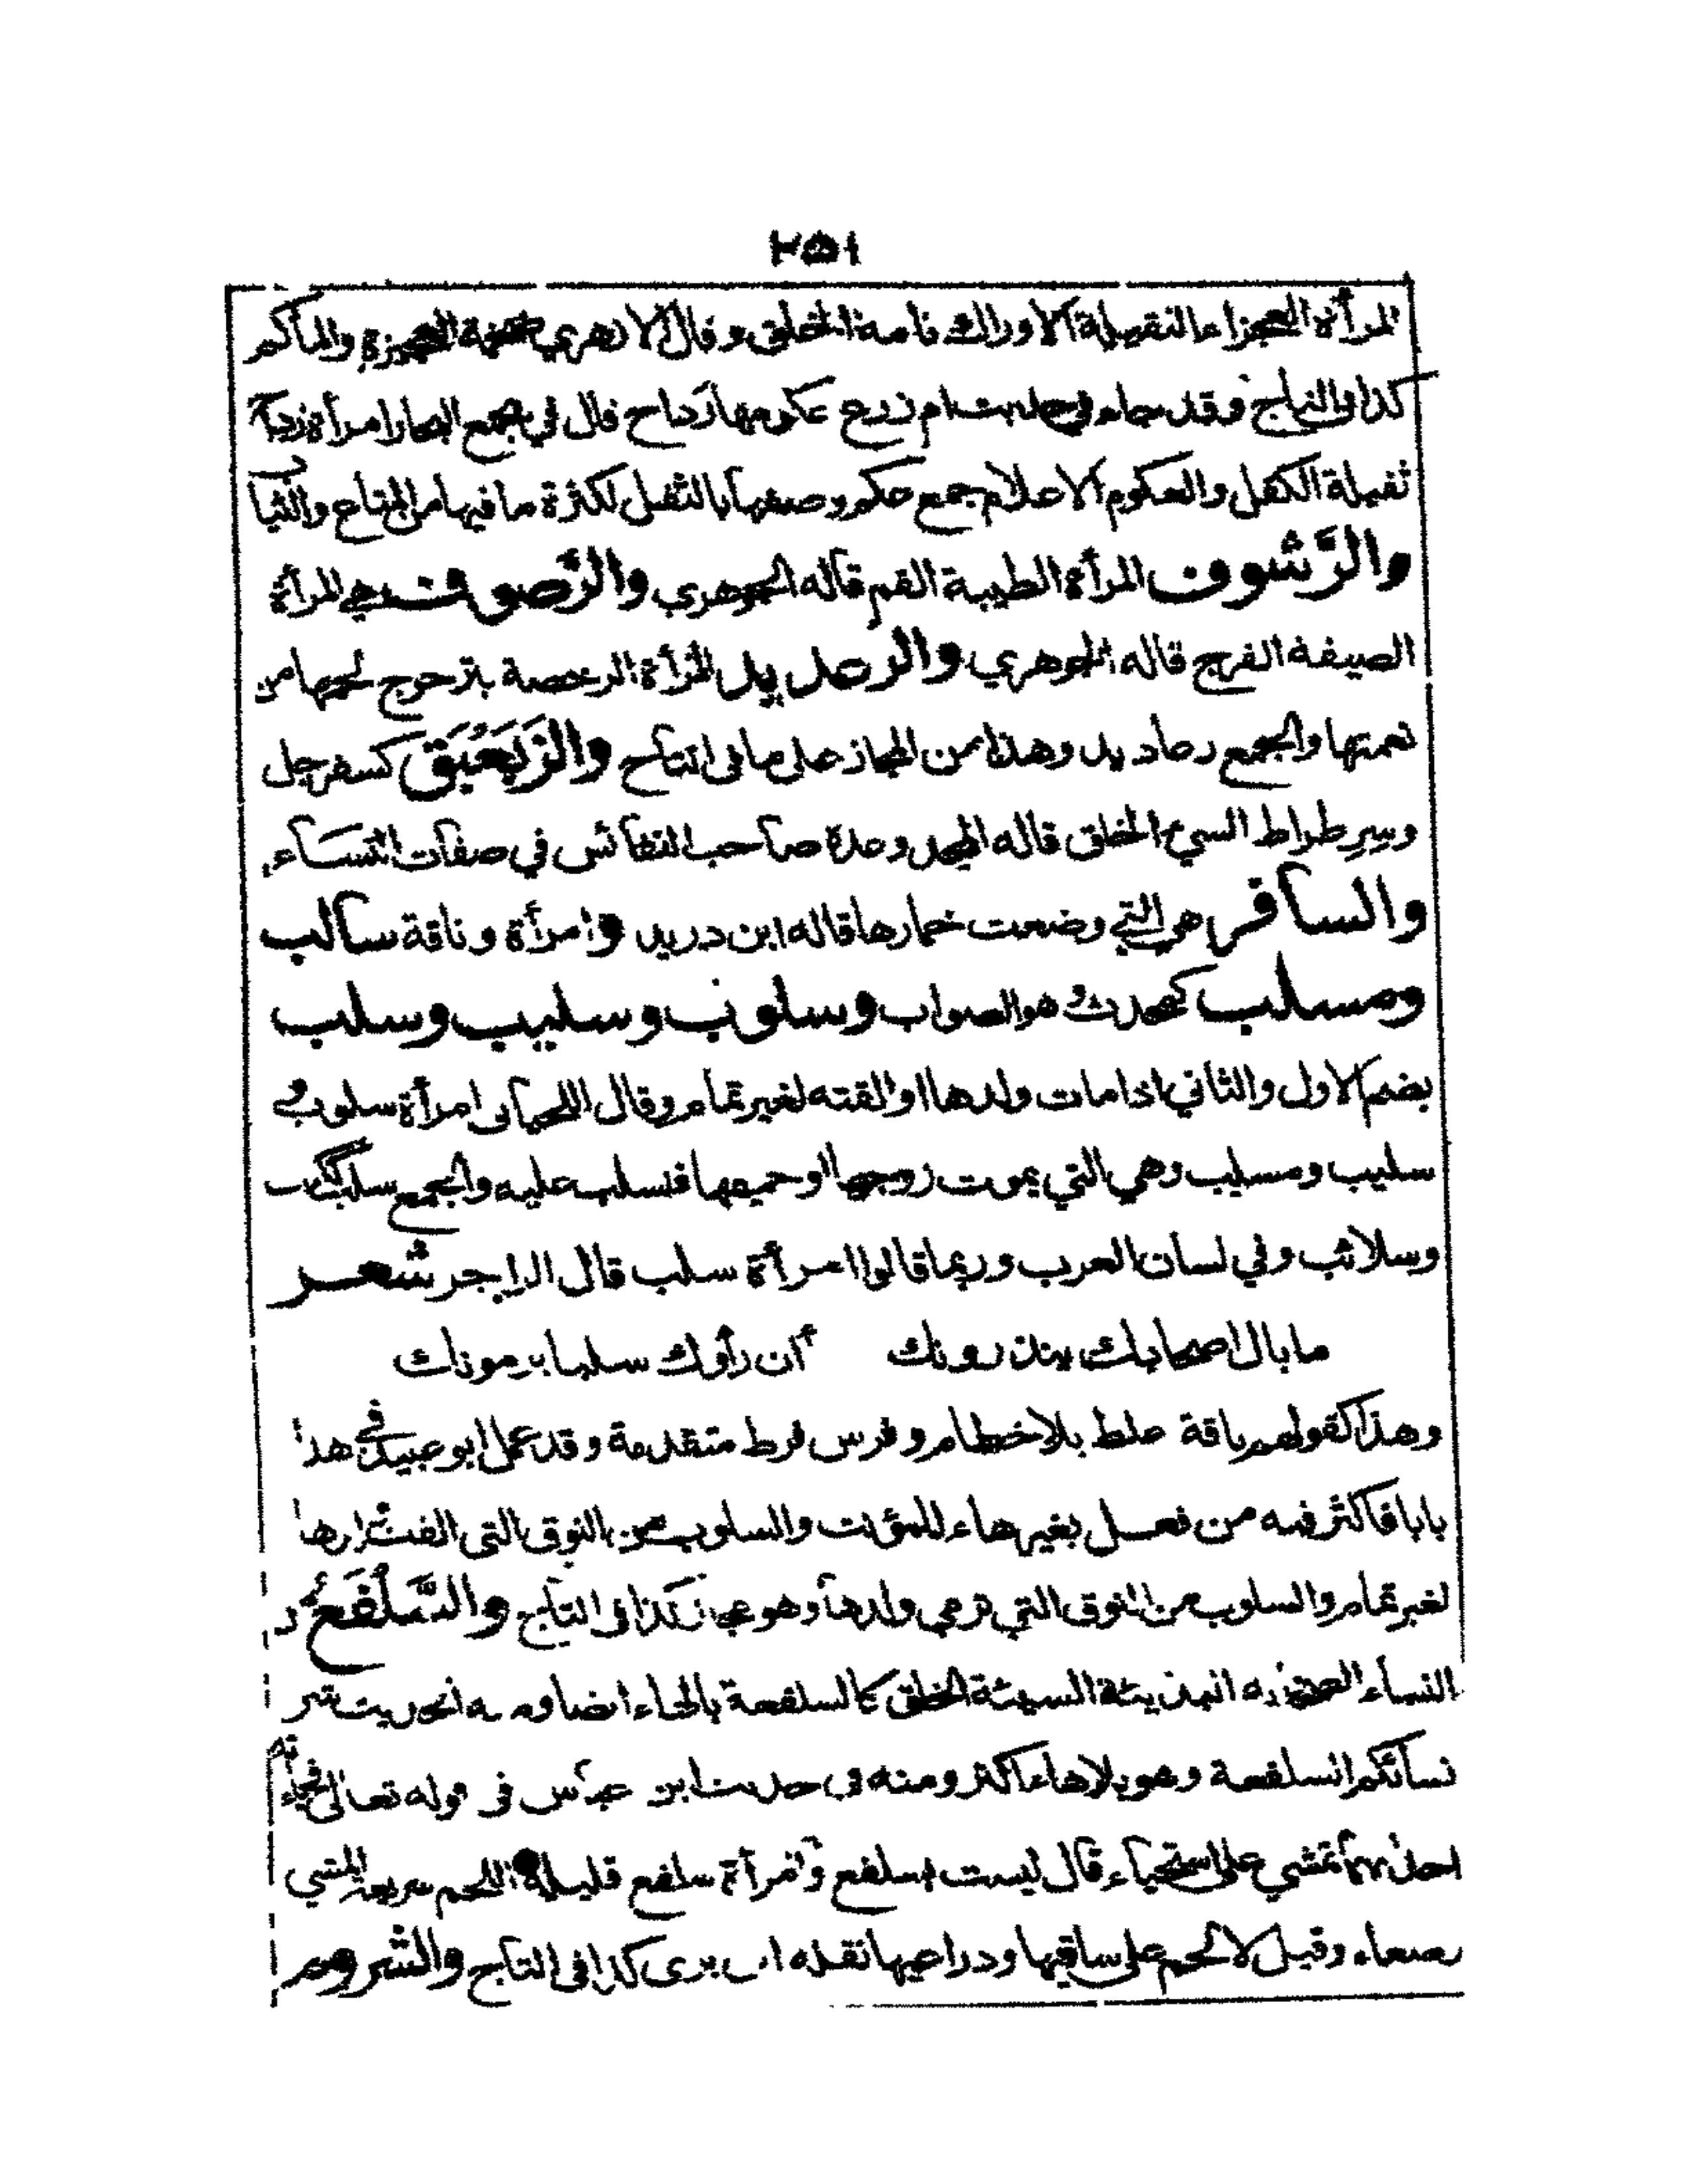 ٢٥١
المرأة العجزاء الثقيلة الاوراك تامة الخلق وقال الازهري ضخمة العجيزة والمآكم
كذا في التاج وقد جاء في حديث ام زرع عكومها رداح قال في مجمع البحار امرأة رداح
ثقيلة الكفل والعكوم الاعلام جمع عكم وصفها بالثقل لكثرة ما فيها من المتاع والثياب
والرَّشوف المرأة الطيبة الفم قاله الجوهري والرَّصوف هي المرأة
الصيفة الفرج قاله الجوهري والرعديد المرأة الرخصة يترجرج لحمها من
نعمتها والجمع رعاديد وهذا من المجاز على ما في التاج والزَبَعْبَق كسفرجل
وسِرِطراط السيء الخلق قاله المجد وعدة صاحب النفائس في صفات النساء
والسافر هي التي وضعت خمارها قاله ابن دريد وامرأة وناقة سالب
ومسلب كمحدث هو الصواب وسلوب وسليب وسلب
بضم الاول والثاني اذا مات ولدها او القته لغير تمام وقال اللحياني امرأة سلوب و
سليب ومسلب وهي التي يموت زوجها او حميمها فتسلب عليه والجمع سلب ككتب
وسلائب وفي لسان العرب وربما قالوا امرأة سلب قال الراجز شعر
ما بال اصحابك ينذرونك أان رأوك سلبا يرمونك
وهذا كقولهم ناقة علط بلا خطام وفرس فرط متقدمة وقد عمل ابو عبيد في هذا
بابا فاكثر فيه من فعل بغير هاء للمؤنث والسلوب من النوق التى القت ولدها
لغير تمام والسلوب من النوق التي ترمي ولدها وهو مجاز كذا فى التاج والسَّلْفَع من
النساء البذيئة السيئة الخلق كالسلفعة بالهاء ايضا ومنه الحديث شر
نسائكم السلفعة وهو بلا هاء اكثر ومنه في حديث ابن عباس فى قوله تعالى فجاءته
احداهما تمشي على استحياء قال ليست بسلفع وامرأة سلفع قليلة اللحم سريعة المشي
رصعاء وقيل لا لحم على ساقيها وذراعيها نقله ابن بري كذا فى التاج والشروم